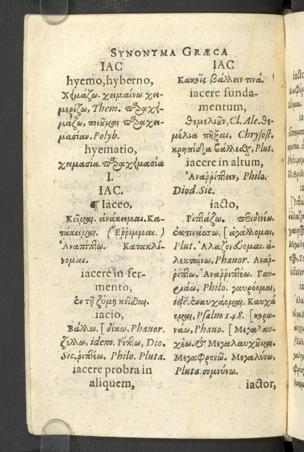 SYNONYMA GRÆCA
IAC
hyemo, hyberno,
Χειμάζω. χειμαίνω χει-
μερίζω, Them. παραχει-
μάζω, ποιοῦμαι παραχει-
μασίαν. Polyb.
hyematio,
χειμασία παραχειμασία
I.
IAC.
¶ Iaceo,
Κεῖμαι. ἀνάκειμαι. Κα-
τάκειμαι. (Ἐῤῥιμμαι.)
Ἀναπίπτω. Κατακλί-
νομαι.
iacere in fer-
mento,
ἐν τῇ ζύμῃ κεῖσθαι.
iacio,
Βάλλω. [δίκω, Phanor.
ἰάλλω, idem. Ρίπτω, Dio.
Sic. ῥιπτέω, Philo. Pluta.
iacere probra in
aliquem,
IAC
Κακοῖς βάλλειν τινά.
iacere funda-
mentum,
θεμελιοῦν, Cl. Ale. θε-
μέλια πῆξαι, Chrysost.
κρηπίδα βάλλεσθαι, Plut.
iacere in altum,
Ἀναῤῥίπτειν, Philo.
Diod. Sic.
iacto,
Ριπτάζω,
ἐκτινάσσω. [ἀγάλλομαι,
Plut. Ἀλαζονεύομαι.
Phanor. Ἀναῤ-
ῥίπτω. Ἀναῤῥιπτέω. Γαυ-
ριάω, Philo. γαυρόομαι,
ἐναυχάομαι. Καυχά
ομαι, Psalm 148. [κορω-
νάω, Phauo. [Μεγαλαυ-
χέω. Μεγαλαυχοῦμαι.
Μεγαφρονῶ. Μεγαλύνω,
Pluta. σεμνύνω.
iactor,